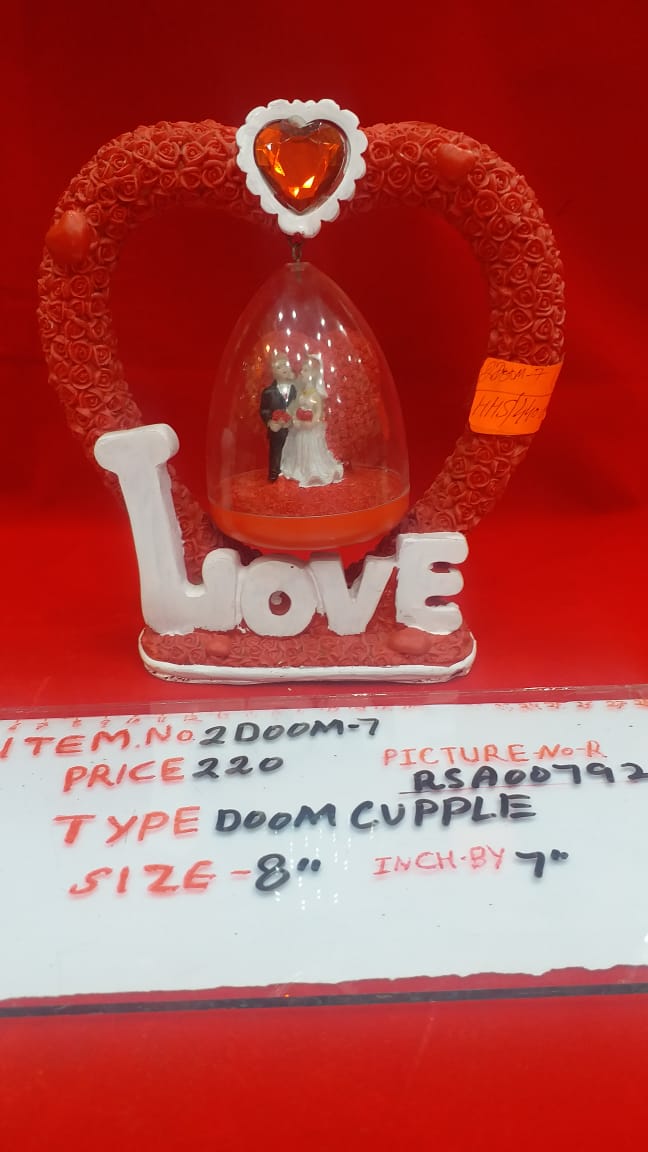 LOVE
ITEM.No.2DOOM-7
PRICE 220
PICTURE-No-R
RSA00792
TYPE DOOM CUPPLE
SIZE-8" INCH-BY 7"